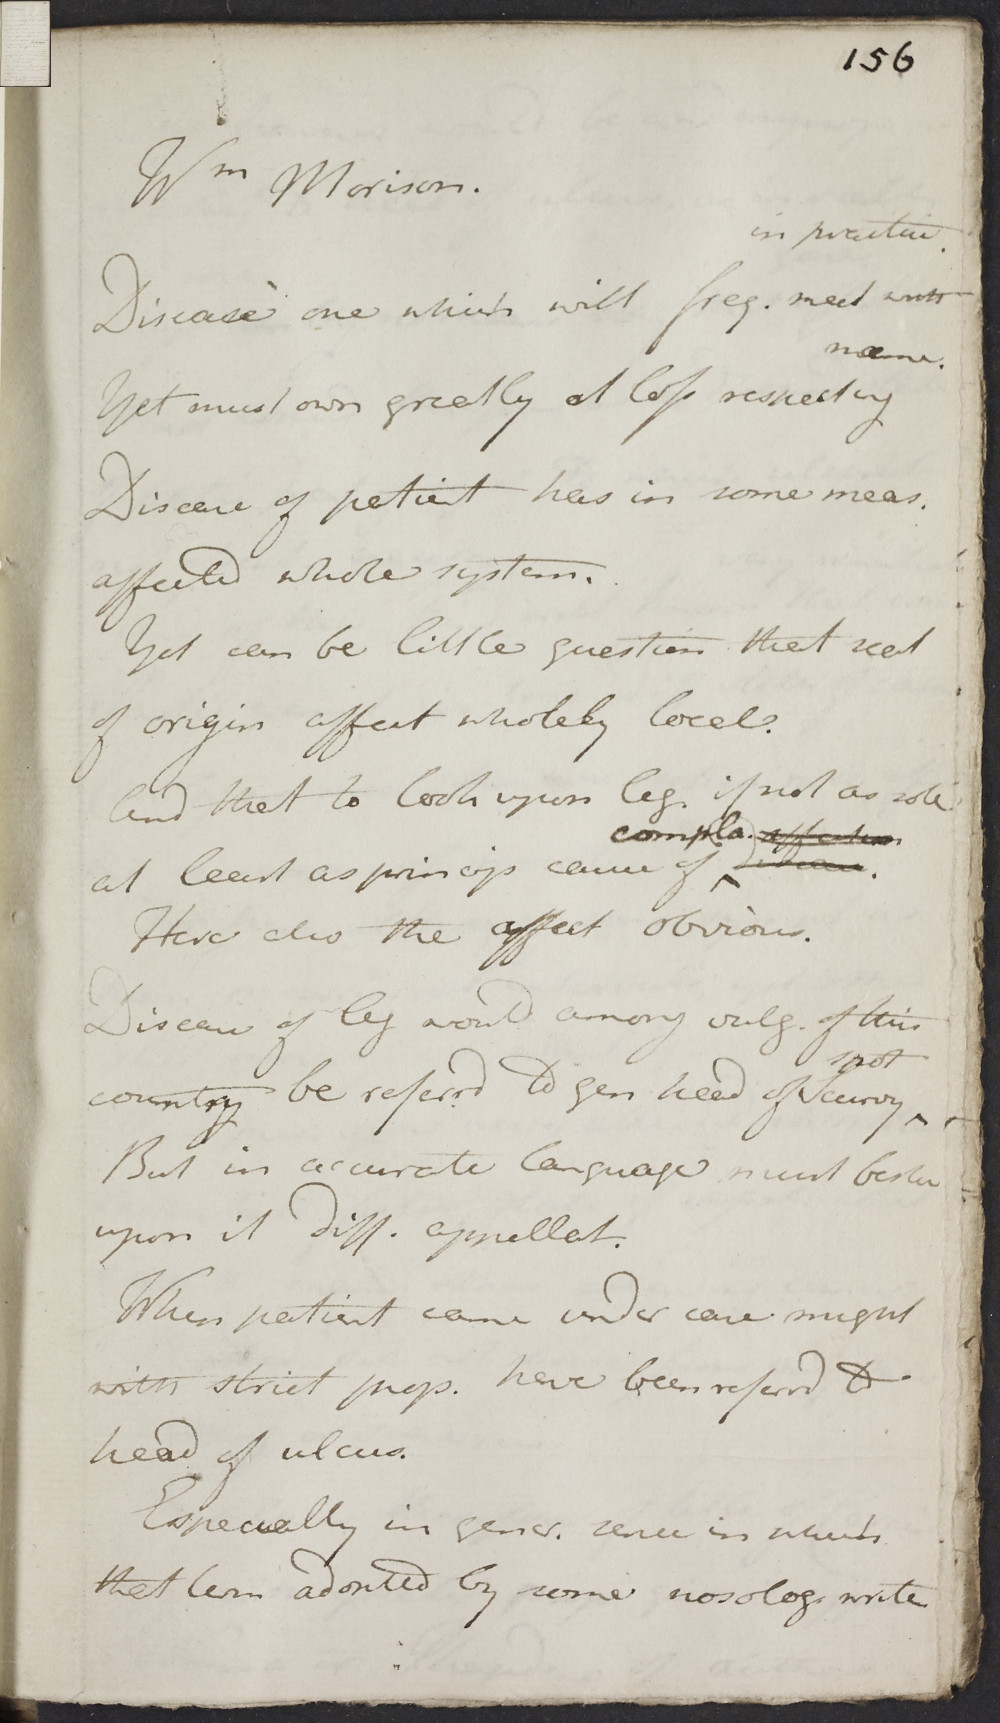 156
Wm Morison.
in practice.
Disease one which will freq. meet with
name.
Yet must own greatly at loss respecting
Disease of patient has in some meas.
affected whole system.
Yet can be little question that seat
of origin affect wholely local.
And that to look upon leg. if not as sole
compla. affection
at least as princip cause of ^ disease.
Here also the affect obvious.
Disease of leg would among vulg. of this
spot
country be referrd to gen head of Scurvy ^
But in accurate language must bestow
upon it diff. appellat.
When patient came under care might
with strict prop. have been referrd to
head of ulcus.
Especially in gener. sense in which
that term adopted by some nosolog. write